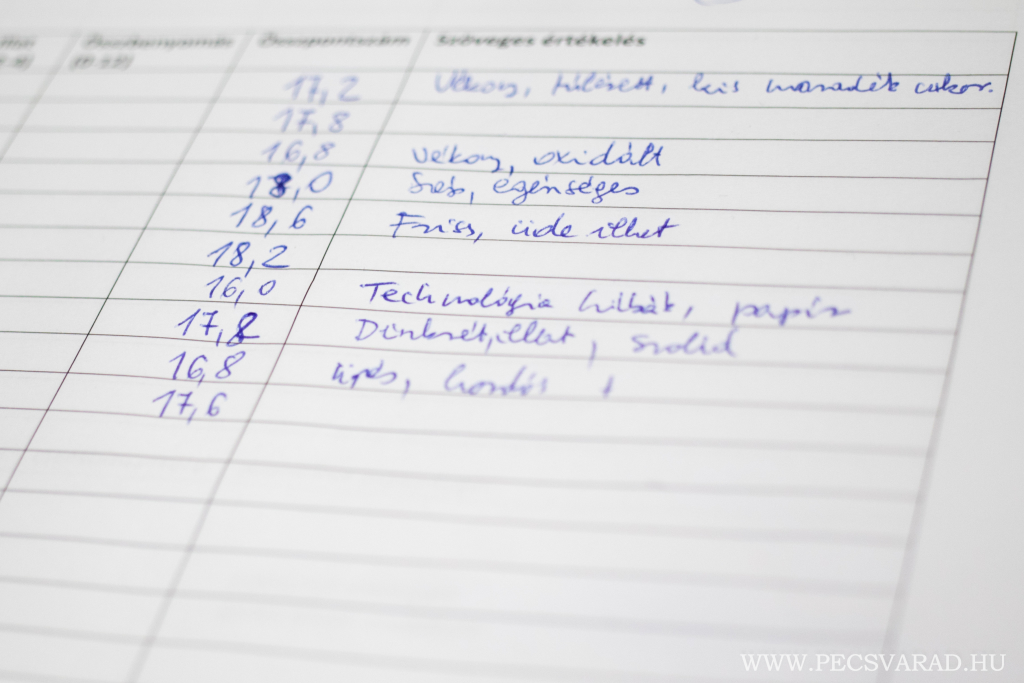 Összbenyomás Összpontszám Szöveges értékelés
17,2 Vékony, túlérett, kis maradék cukor.
17,8
16,8 vékony, oxidált
18,0 Szép, egészséges
18,6 Friss, üde illat
18,2
16,0 Technológia hibák, papír
17,2 Diszkrét, illat, szolid
16,8 hordós
17,6
WWW.PECSVARAD.HU